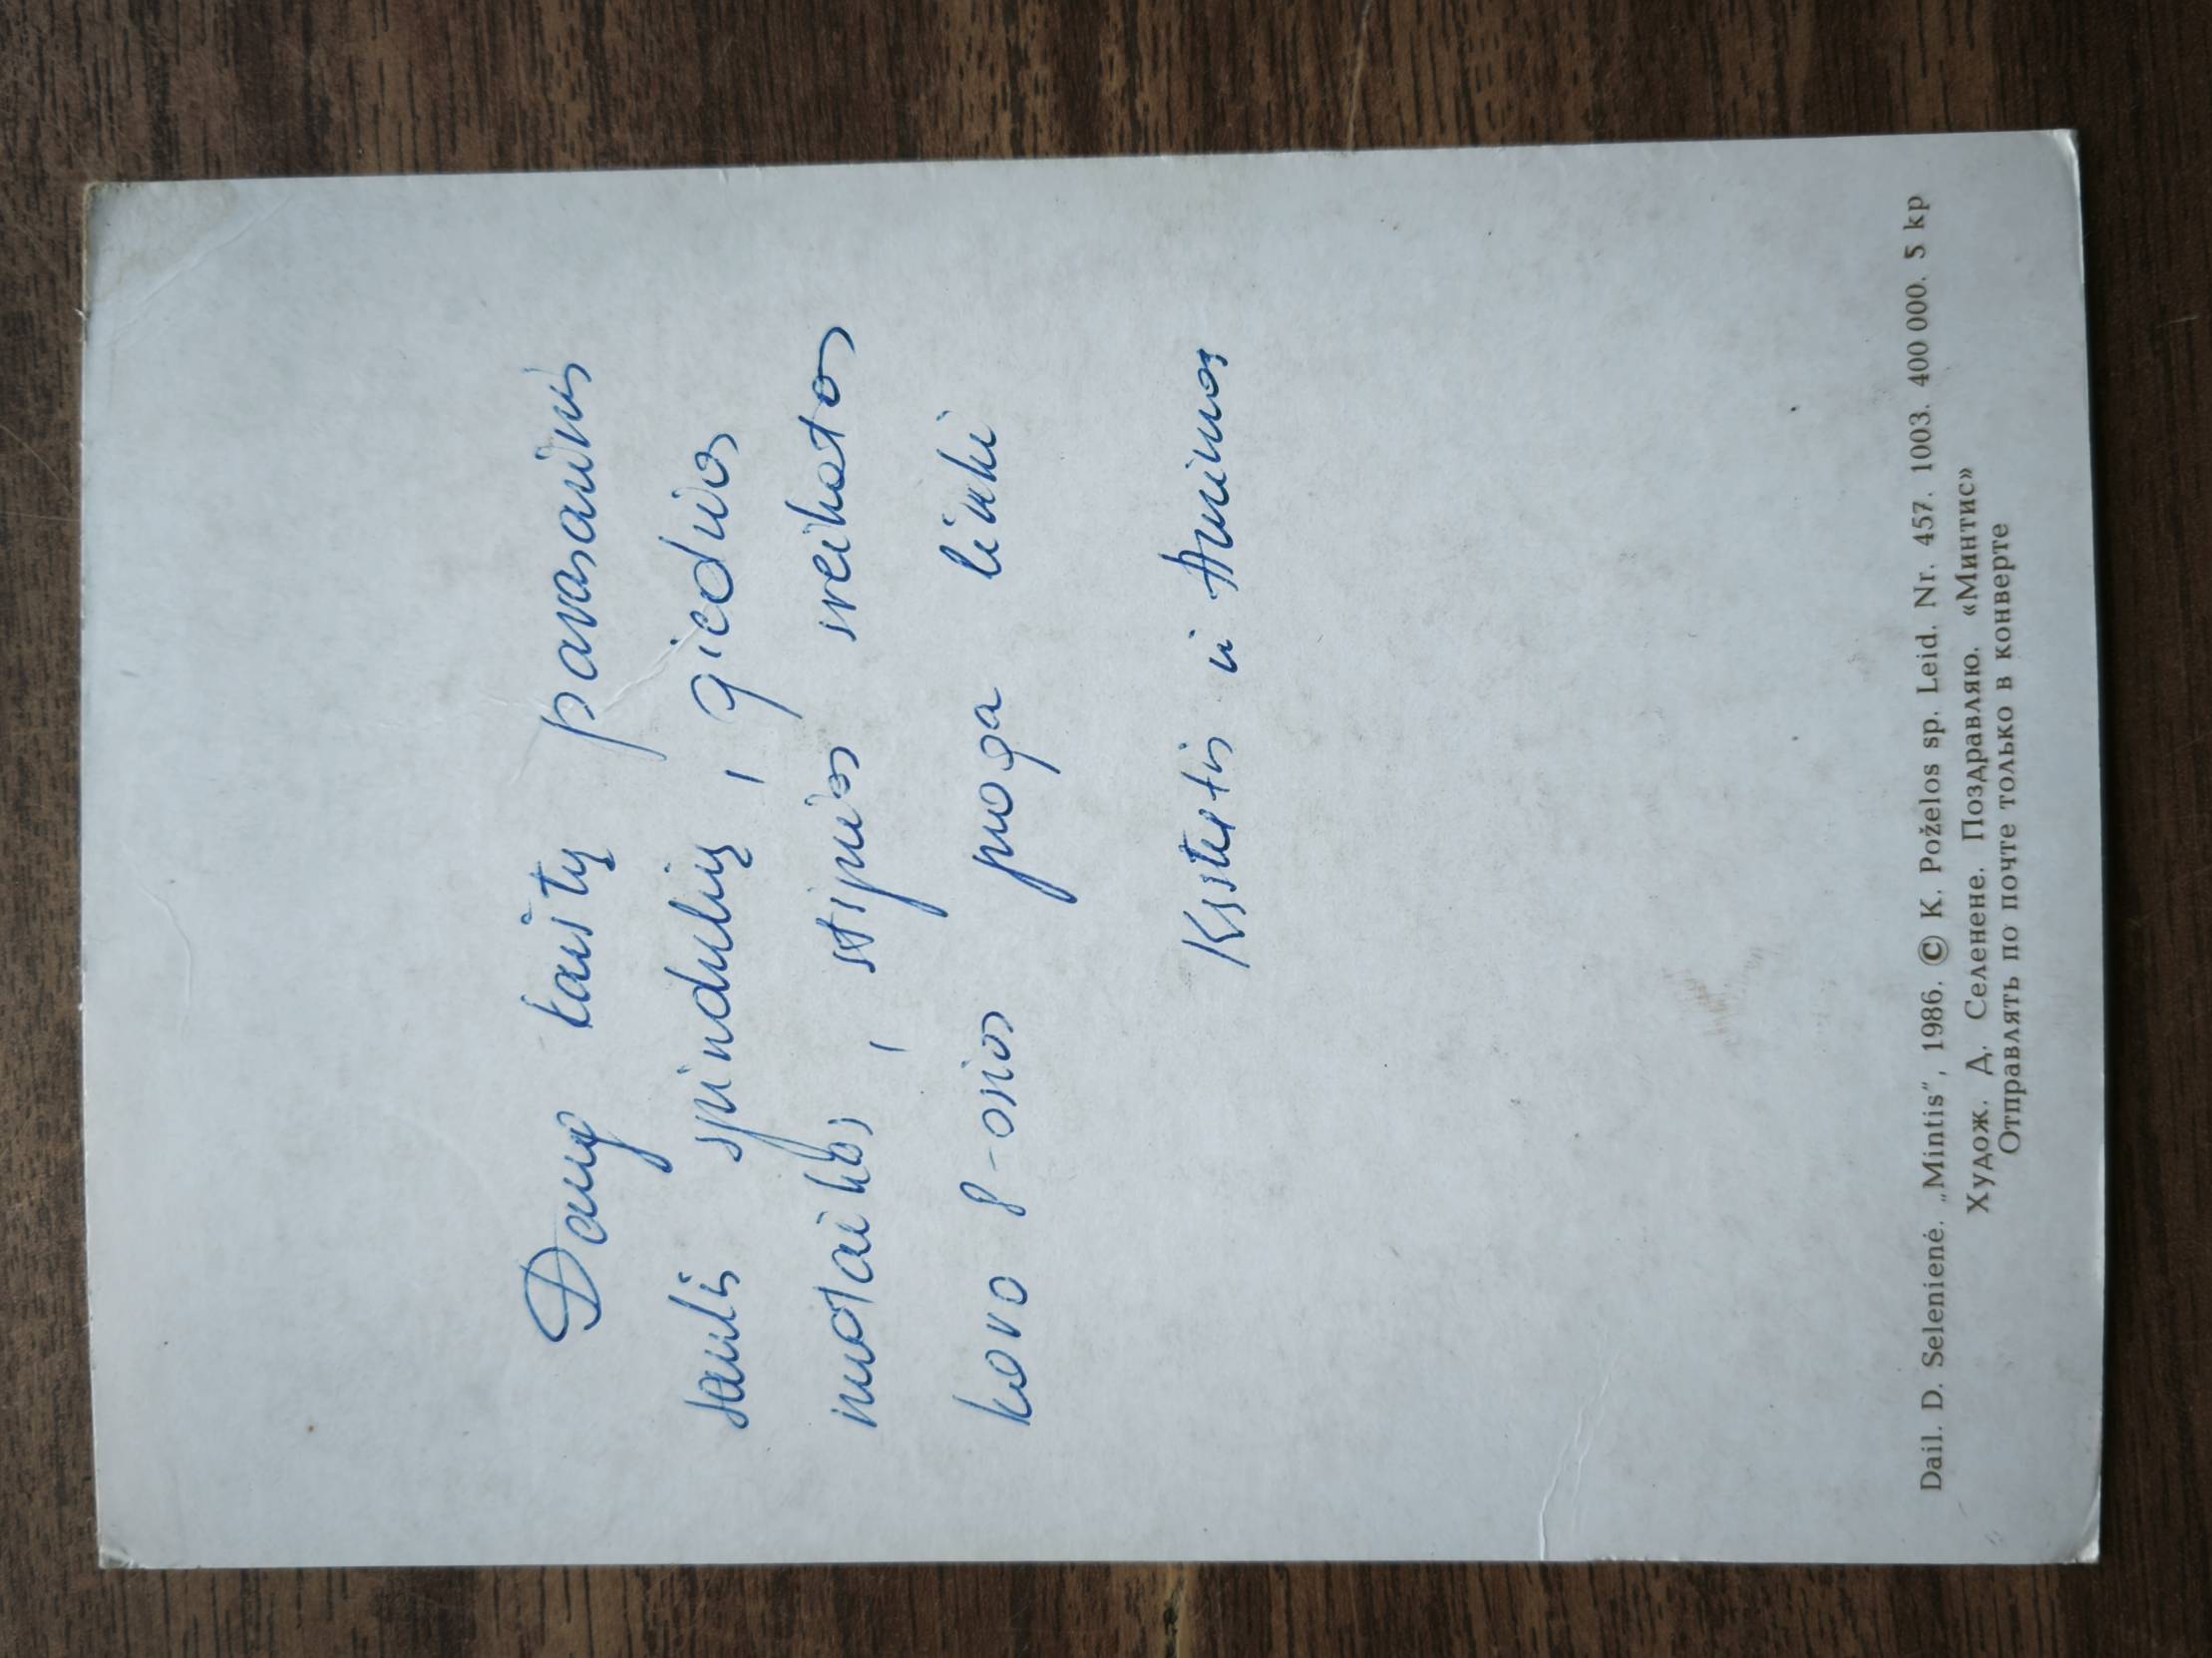 Daug kaistų pavasarinis
saulės spindulių, giedrios
nuotaikos, stiprios sveikatos
kovo 8-osios proga linki
Kęstutis ir
Dail. D. Selenienė. „Mintis", 1986. © K. Poželos sp. Leid. Nr. 457. 1003. 400 000. 5 kp
Худож. Д. Селенене. Поздравляю. «Минтис»
Отправлять по почте только в конверте